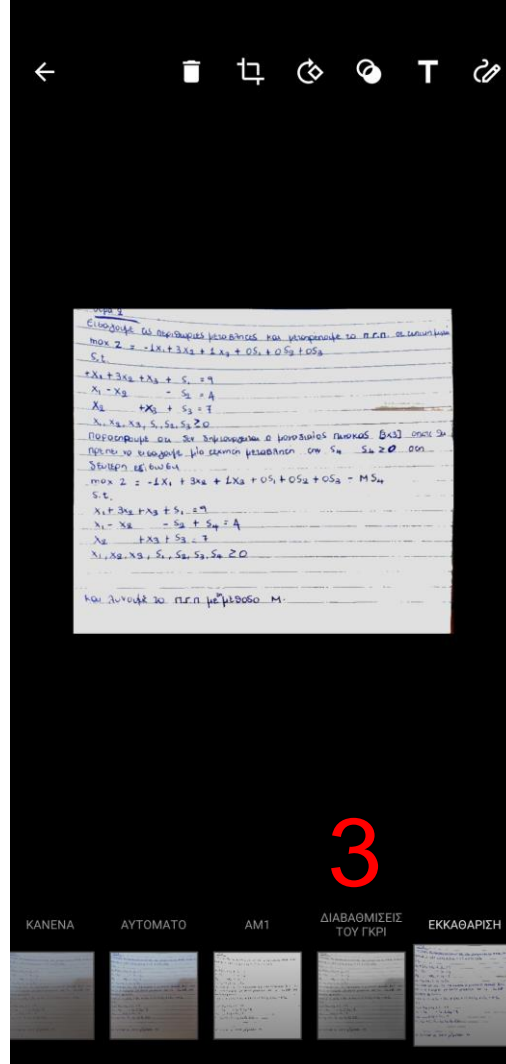 T
Θέμα 2
Εισάγουμε ως περιθώριες μεταβλητές και μετατρέπουμε το π.γ.π. σε
max Z = -1x₁ + 3x₂ + 1x₃ + 0S₁ + 0S₂ + 0S₃
S.t.
+x₁ + 3x₂ + x₃ + S₁ = 9
x₁ - x₂ - S₂ = 4
x₂ + x₃ + S₃ = 7
x₁, x₂, x₃, S₁, S₂, S₃ ≥ 0
Παρατηρούμε ότι δεν δημιουργείται ο μοναδιαίος πίνακας [3x3] οπότε θα
πρέπει να εισάγουμε μία τεχνητή μεταβλητή την S₄ S₄ ≥ 0 στη
δεύτερη εξίσωση
max Z = -1x₁ + 3x₂ + 1x₃ + 0S₁ + 0S₂ + 0S₃ - MS₄
S.t.
x₁ + 3x₂ + x₃ + S₁ = 9
x₁ - x₂ - S₂ + S₄ = 4
x₂ + x₃ + S₃ = 7
x₁, x₂, x₃, S₁, S₂, S₃, S₄ ≥ 0
και λύνουμε το π.γ.π με τη μέθοδο Μ.
3
ΚΑΝΕΝΑ ΑΥΤΟΜΑΤΟ ΑΜ1 ΔΙΑΒΑΘΜΙΣΕΙΣ ΤΟΥ ΓΚΡΙ ΕΚΚΑΘΑΡΙΣΗ